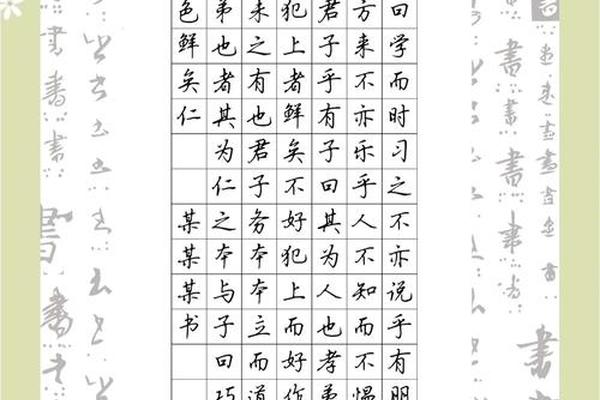 曰学而时习之不亦说乎有朋
方来不亦乐乎人不知而不愠
君子乎有子曰其为人也孝弟
犯上者鲜矣不好犯上而好作
未之有也君子务本本立而道
弟也者其为仁之本与子曰巧
色鲜矣仁
某某某书